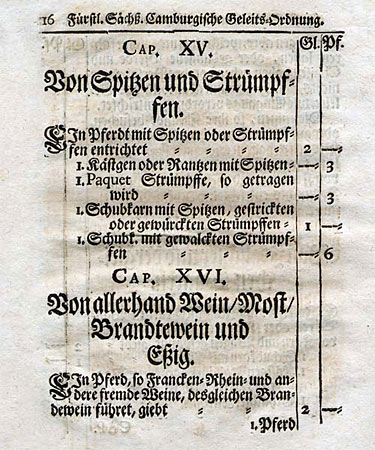 16 Fürstl. Sächß. Camburgische Geleits-Ordnung.
Gl. Pf.
CAP. XV.
Von Spitzen und Strümpf-
fen.
EIn Pferdt mit Spitzen oder Strümpf-
fen entrichtet 2 —
1. Kästgen oder Rantzen mit Spitzen — 3
1. Paquet Strümpffe, so getragen
wird — 3
1. Schubkarn mit Spitzen, gestrickten
oder gewürckten Strümpffen 1 —
1. Schubk. mit gewalckten Strümpf-
fen — 6
CAP. XVI.
Von allerhand Wein/Most/
Brandtewein und
Eßig.
EIn Pferd, so Francken-Rhein- und an-
dere fremde Weine, desgleichen Bran-
dewein führet, giebt 2 —
1. Pferd